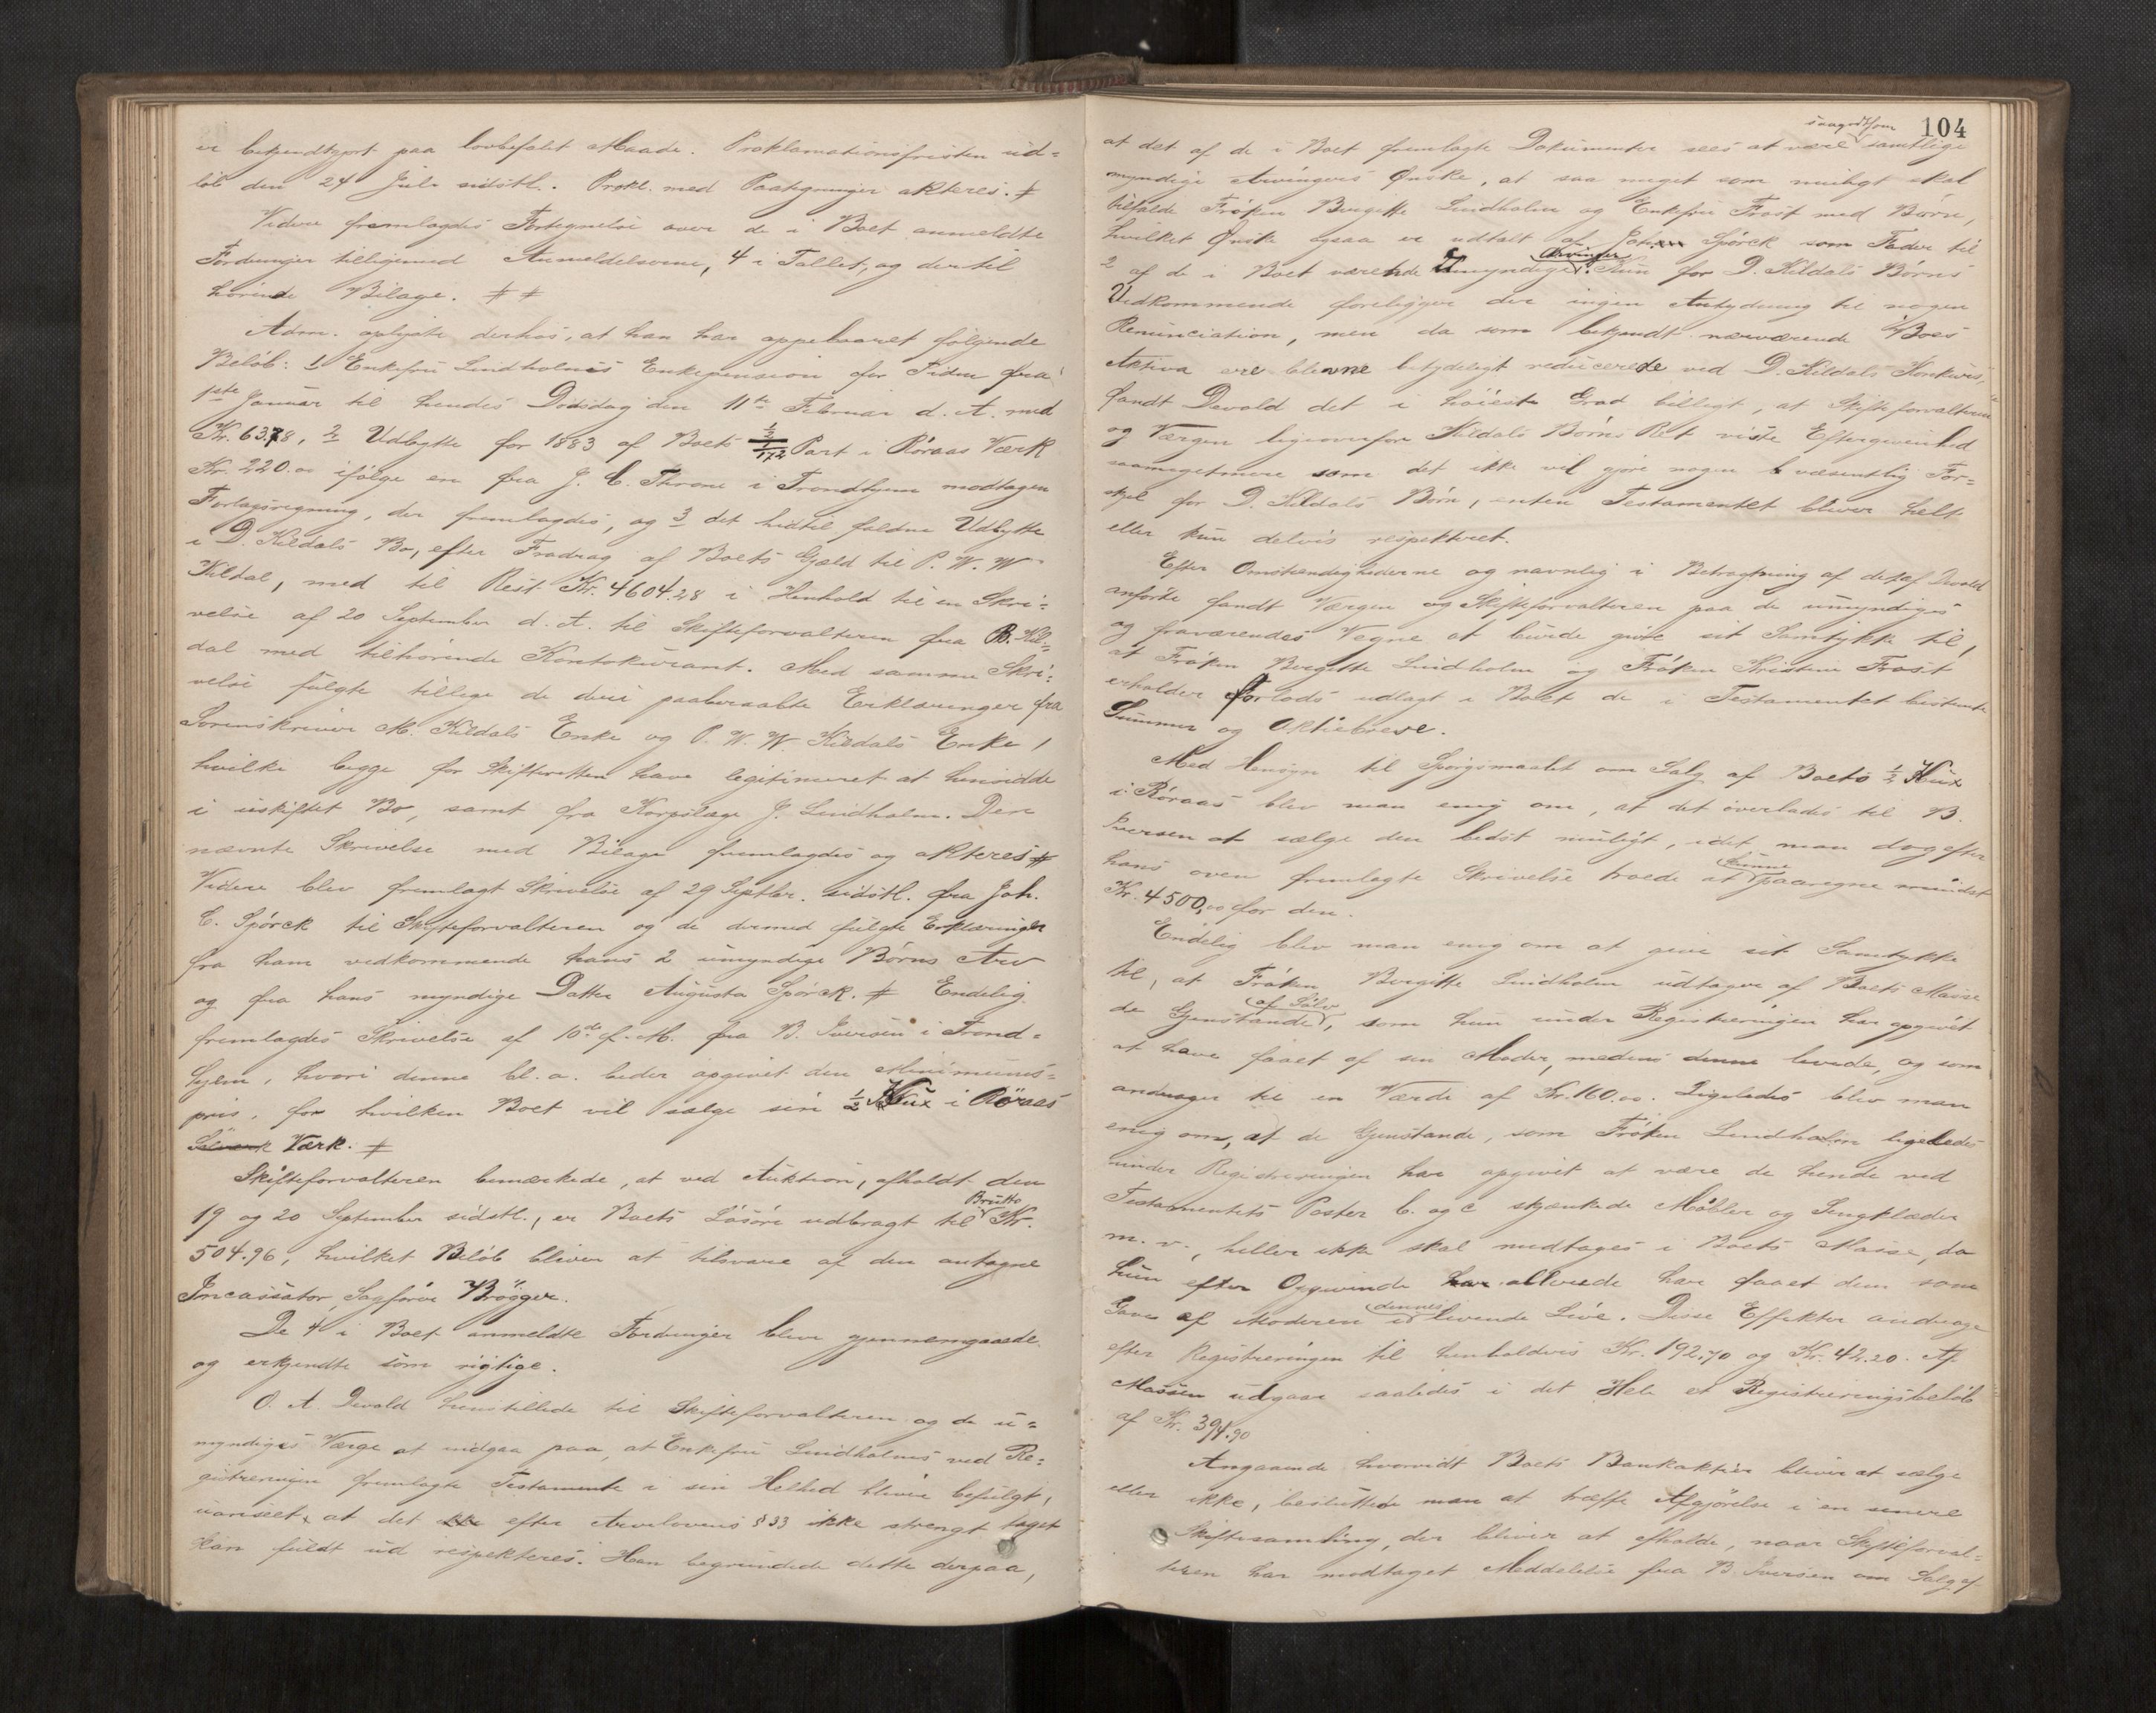 er bekjendtgjort paa lovbefalet Maade. Proklamationsfristen ud-
löb den 24 Juli sidstl. Prokl. med Paategninger akteres. #
Videre fremlagdes Fortegnelse over de i Boet anmeldte
Fordringer tilligemed Anmeldelserne, 4 i Tallet, og dertil
hörende Bilage. # #
Adm. oplyste derhos, at han har oppebaaret fölgende
Belöb: 1 Enkefru Lindholms Enkepension for Tiden fra
1ste Januar til hendes Dödsdag den 11te Februar d. A. med
Kr. 63.78, 2 Udbytte for 1883 af Boets 1/2/172 Part i Röraas Værk
Kr. 220.00 ifölge en fra J. C. Throne i Trondhjem modtagen
Forlagsregning, der fremlagdes, og 3 det hidtil faldne Udbytte
i D. Kildals Bo, efter Fradrag af Boets Gjeld til P. W. W.
Kildal, med til Rest Kr. 4604.28 i Henhold til en Skri-
velse af 20 September d. A. til Skifteforvalteren fra B. Kil-
dal med tilhörende Kontokurant. Med samme Skri-
velse fulgte tillige de deri paaberaabte Erklæringer fra
Sorenskriver M. Kildals Enke og P. W. W. Kildals Enke,
hvilke begge for Skifteretten have legitimeret at hensidde
i uskiftet Bo, samt fra Korpslæge J. Lindholm. Den
nævnte Skrivelse med Bilage fremlagdes og akteres #
Videre blev fremlagt Skrivelse af 29 Septbr. sidstl. fra Joh.
C. Spörck til Skifteforvalteren og de dermed fulgte Erklæringer
fra ham vedkommende hans 2 umyndige Börns Arv
og fra hans myndige Datter Augusta Spörck. # Endelig
fremlagdes Skrivelse af 10de f. M. fra B. Iversen i Trond-
hjem, hvori denne bl. a. beder opgivet den Minimums-
pris, for hvilken Boet vil sælge sin 1/2 Kux i Röraas
Sölværk Værk. #
Skifteforvalteren bemærkede, at ved Auktion, afholdt den
19 og 20 September sidstl., er Boets Lösöre udbragt til Brutto Kr.
504.96, hvilket Belöb bliver at tilsvare af den antagne
Incassator, Sagförer Brögger.
De 4 i Boet anmeldte Fordringer bleve gjennemgaaede
og erkjendte som rigtige.
O. A. Devold henstillede til Skifteforvalteren og de u-
myndiges Værge at indgaa paa, at Enkefru Lindholms ved Re-
gistreringen fremlagte Testamente i sin Helhed bliver befulgt,
uanseet, at det ikke efter Arvelovens § 33 ikke strengt taget
kan fuldt ud respekteres. Han begrundede dette derpaa,
104
at det af de i Boet fremlagte Dokumenter sees at være saagodtsom samtlige
myndige Arvingers Ønske, at saa meget som muligt skal
tilfalde Fröken Bergitte Lindholm og Enkefru Frost med Börn,
hvilket Ønske ogsaa er udtalt af Johan Spörck som Fader til
2 af de i Boet værende Umyndige Arvinger. Kun for D. Kildals Börns
Vedkommende foreligger der ingen Antydning til nogen
Renunciation, men da som bekjendt nærværende Boes
Aktiva ere blevne betydeligt reducerede ved D. Kildals Konkurs,
fandt Devold det i höieste Grad billigt, at Skifteforvalteren
og Værgen ligeoverfor Kildals Börns Ret viste Eftergivenhed
saamegetmere som det ikke vil gjöre nogen væsentlig For-
skjel for D. Kildals Börn, enten Testamentet bliver helt
eller kun delvis respekteret.
Efter Omstændighederne og navnlig i Betragtning af det af Devold
anförte fandt Værgen og Skifteforvalteren paa de umyndiges
og fraværendes Vegne at burde give sit Samtykke til,
at Fröken Bergitte Lindholm og Fröken Kristine Frost
erholder forlods udlagt i Boet de i Testamentet bestemte
Summer og Aktiebreve.
Med Hensyn til Spörgsmaalet om Salg af Boets 1/2 Kux
i Röraas blev man enig om, at det overlades til B.
Iversen at sælge den bedst muligt, idet man dog efter
hans oven fremlagte Skrivelse troede at kunne paaregne mindst
Kr. 4500,00 for den.
Endelig blev man enig om at give sit Samtykke
til, at Fröken Bergitte Lindholm udtager af Boets Masse
de Gjenstande af Sölv, som hun under Registreringen har opgivet
at have faaet af sin Moder, medens denne levede, og som
andrager til en Værdi af Kr. 160.00. Ligeledes blev man
enig om, at de Gjenstande, som Fröken Lindholm ligeledes
under Registreringen har opgivet at være de hende ved
Testamentets Poster b. og c skjænkede Möbler og Sengklæder
m. v., heller ikke skal medtages i Boets Masse, da
hun efter Opgivende har allerede har faaet dem som
Gave af Moderen i dennes levende Live. Disse Effekter andrage
efter Registreringen til henholdsvis Kr. 192.70 og Kr. 42.20. Af
Massen udgaar saaledes i det Hele et Registreringsbelöb
af Kr. 394.90
Angaaende hvorvidt Boets Bankaktier bliver at sælge
eller ikke, besluttede man at træffe Afgjörelse i en senere
Skiftesamling, der bliver at afholde, naar Skifteforval-
teren har modtaget Meddelelse fra B. Iversen om Salg af